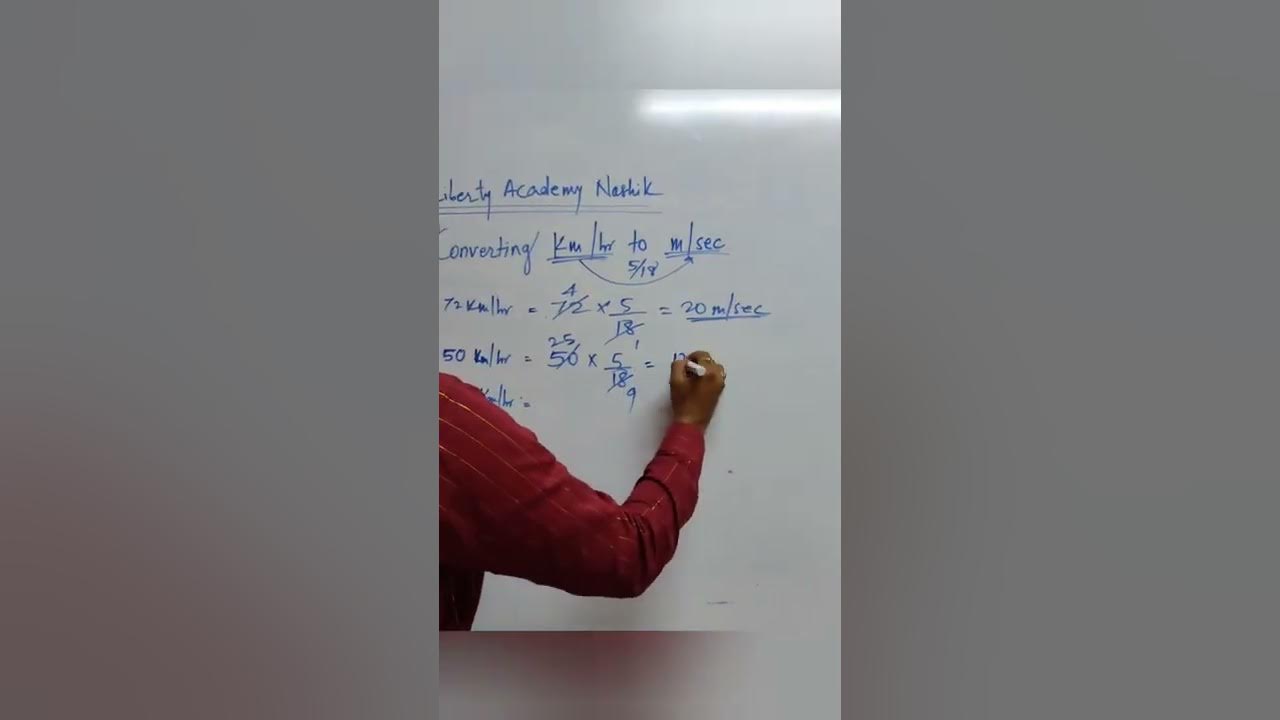 Liberty Academy Nashik
Converting Km/hr to m/sec
5/18
4
72 Km/hr = 72 × 5/18 = 20 m/sec
1
25
50 Km/hr = 50 × 5/18 =
9
Km/hr =